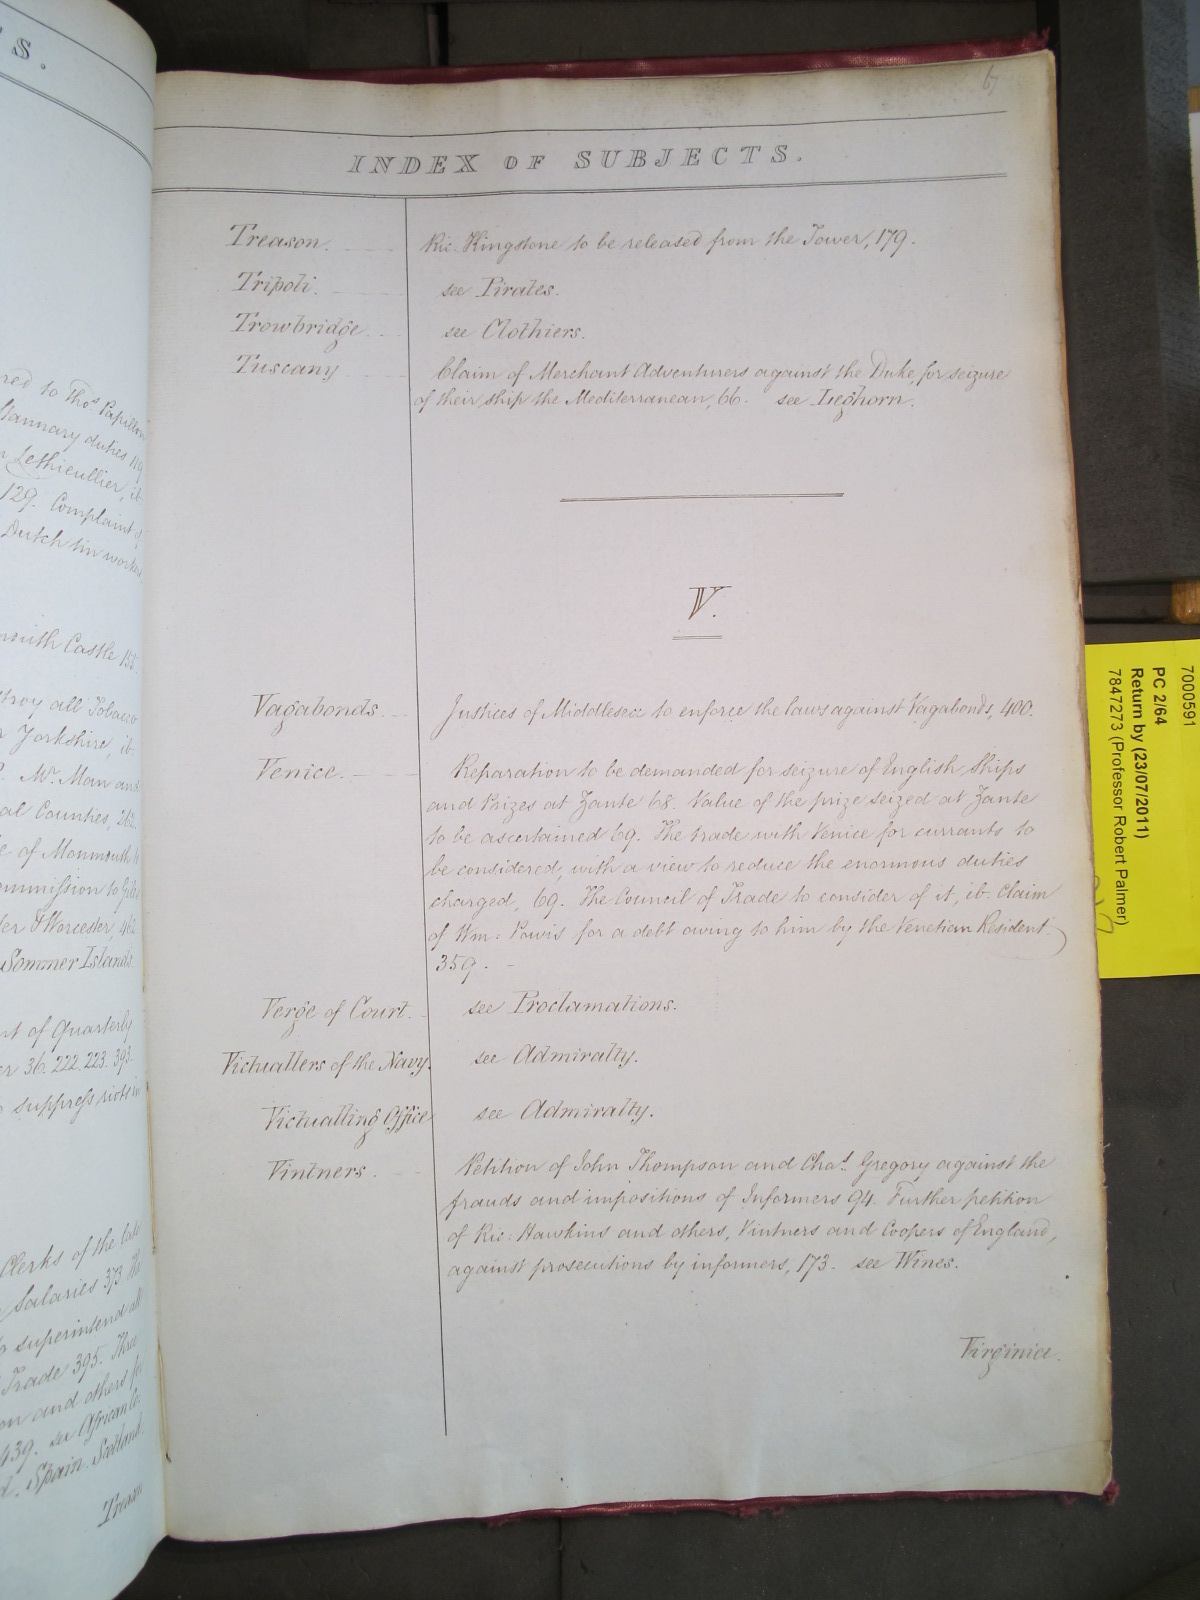 S.
red to Thos Papillon
Stannary duties 119
Lethieullier, ib
129. Complaint of
Dutch tin workers
mouth Castle 155
troy all Tobacco
Yorkshire, ib
Mr. Man and
al Counties, 262
e of Monmouth
ommission to Giles
ter & Worcester, 462
Sommer Islands
nt of Quarterly
er 36. 222. 223. 393.
suppress riots in
Clerks of the late
Salaries 373. The
to superintend all
Trade 395. Three
on and others for
439. see African Co.
Spain. Scotland.
Treason
67
INDEX OF SUBJECTS.
Treason. Ric. Kingstone to be released from the Tower, 179.
Tripoli. see Pirates.
Trowbridge see Clothiers.
Tuscany Claim of Merchant Adventurers against the Duke, for seizure
of their ship the Mediterranean, 66. see Leghorn.
V.
Vagabonds. Justices of Middlesex to enforce the laws against Vagabonds, 400.
Venice. Reparation to be demanded for seizure of English Ships
and Prizes at Zante 68. Value of the prize seized at Zante
to be ascertained 69. The trade with Venice for currants to
be considered, with a view to reduce the enormous duties
charged, 69. The Council of Trade to consider of it, ib. Claim
of Wm: Powis for a debt owing to him by the Venetian Resident.
359.
Verge of Court. see Proclamations.
Victuallers of the Navy. see Admiralty.
Victualling Office see Admiralty.
Vintners. Petition of John Thompson and Chas. Gregory against the
frauds and impositions of Informers 94. Further petition
of Ric: Hawkins and others, Vintners and Coopers of England,
against prosecutions by informers, 173. see Wines.
Virginia.
7000591
PC 2/64
Return by (23/07/2011)
7847273 (Professor Robert Palmer)